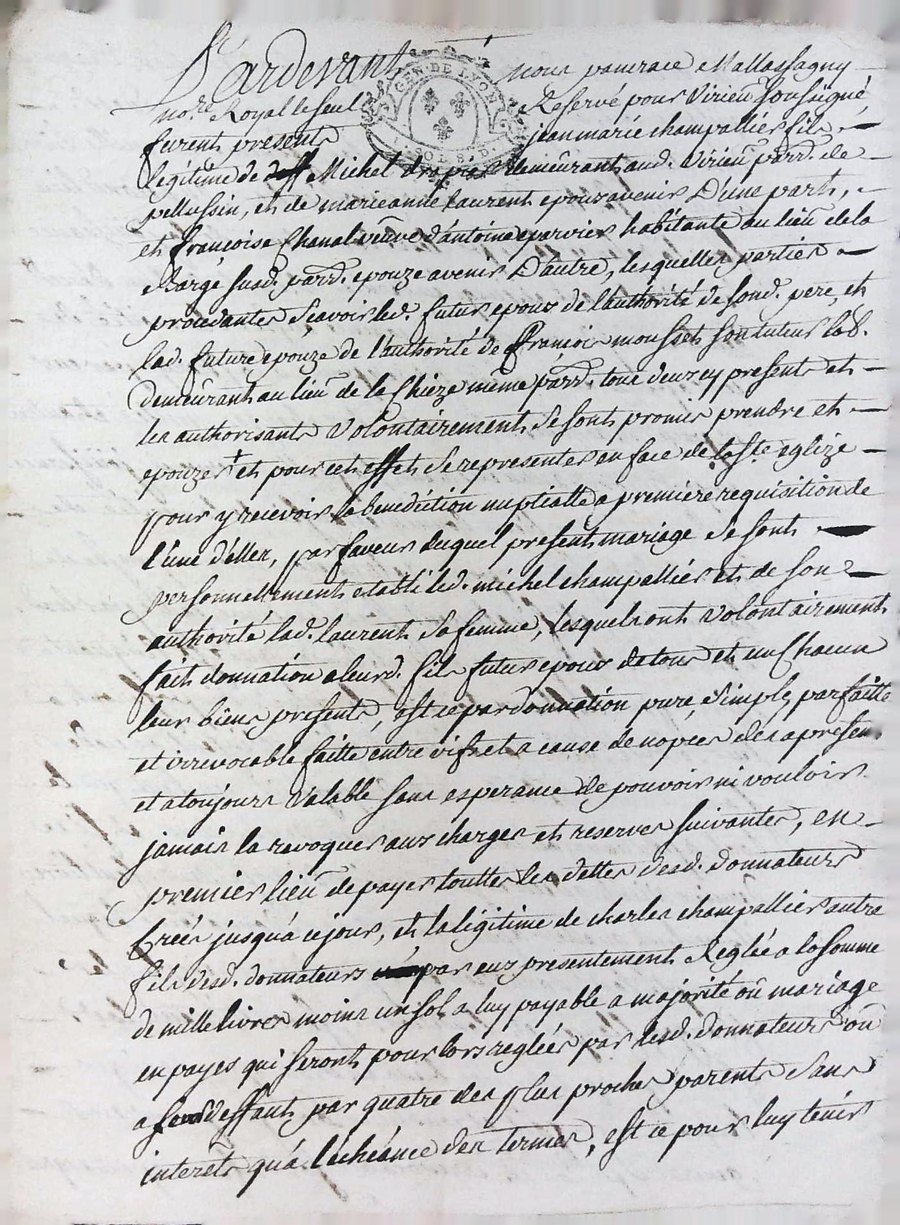 Pardevant nous pancrace Mallassagny
no.re Royal le seul Reservé pour Virieu soussigné
furent presents jean marie champallier fils
légitime de Michel drapier demeûrant aud. Virieu parr. de
pellussin, et de marieanne Laurent epous avenir D'une part,
et françoise Chanal veûve d'antoine eparvier habitante au lieû de la
Rargé susd. parr. epouze avenir D'autre, lesquelles parties
procedantes scavoir led. futur epous de l'authorité de sond. pere, et
lad. future epouze de l'authorité de françois mousset son tuteur lab.
demeûrant au lieû de la Chieze même parr. tous deux cy presents et
les authorisants Volontairement se sont promis prendre et
epouzer + et pour cet effet se representer en face de la ste eglize
pour y recevoir la benediction nuptialle a premiere requisition de
l'une d'elles, par faveur duquel present mariage se sont
personnellement etabli led. michel champallier et de son
authorité lad. laurent sa femme, lesquels ont Volontairement
fait donnation a leurd. fils futur epous de tous et un Chacun
leur biens presents, est ce par donnation pure, simple, parfaitte
et irrevocable faitte entre vifs et a cause de nopces des apresent
et a toujours Valable sans esperance de pouvoir ni vouloir
jamais la revoquer aux charges et reserves suivantes, en
premier lieû de payer touttes les dettes desd. donnateurs
Creés jusqu'a ce jour, et la légitime de charles champallier autre
fils desd. donnateurs par eux presentement Reglée a la somme
de mille livres moins un sol a luy payable a majorité oû mariage
en payes qui seront pour lors reglées par lesd. donnateurs oû
a leur deffaut par quatre des plus proches parents sans
interets qu'a l'echéance des termes, est ce pour luy tenir
GEN. DE LYON
SOLS